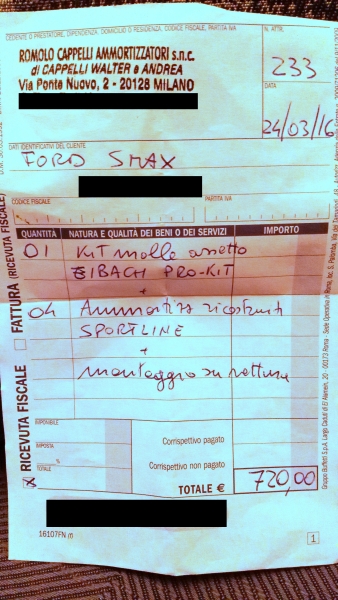 CEDENTE O PRESTATORE, DIPENDENZA, DOMICILIO O RESIDENZA, CODICE FISCALE, PARTITA IVA
N. ATTR.
ROMOLO CAPPELLI AMMORTIZZATORI s.n.c.
di CAPPELLI WALTER e ANDREA
Via Ponte Nuovo, 2 - 20128 MILANO
233
DATA
24/03/16
DATI IDENTIFICATIVI DEL CLIENTE
FORD SMAX
CODICE FISCALE
PARTITA IVA
QUANTITÀ NATURA E QUALITÀ DEI BENI O DEI SERVIZI IMPORTO
01 Kit molle assetto
EIBACH PRO-KIT
+
04 Ammortizz ricostruiti
SPORTLINE
+
montaggio su vettura
IMPONIBILE
IMPOSTA
%
TOTALE
Corrispettivo pagato
Corrispettivo non pagato
TOTALE € 720,00
RICEVUTA FISCALE
FATTURA (RICEVUTA FISCALE)
X
16107FN /6
1